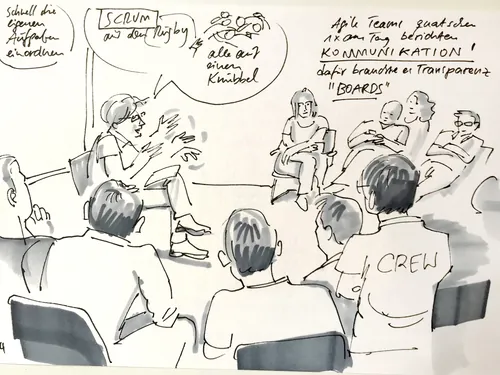 Schnell die
eigenen
Aufgaben
einordnen
SCRUM
aus dem Rugby
alle auf
einen
Knubbel
Agile Teams quatschen
1x am Tag berichten
KOMMUNIKATION!
dafür brauchte es Transparenz
"BOARDS"
CREW